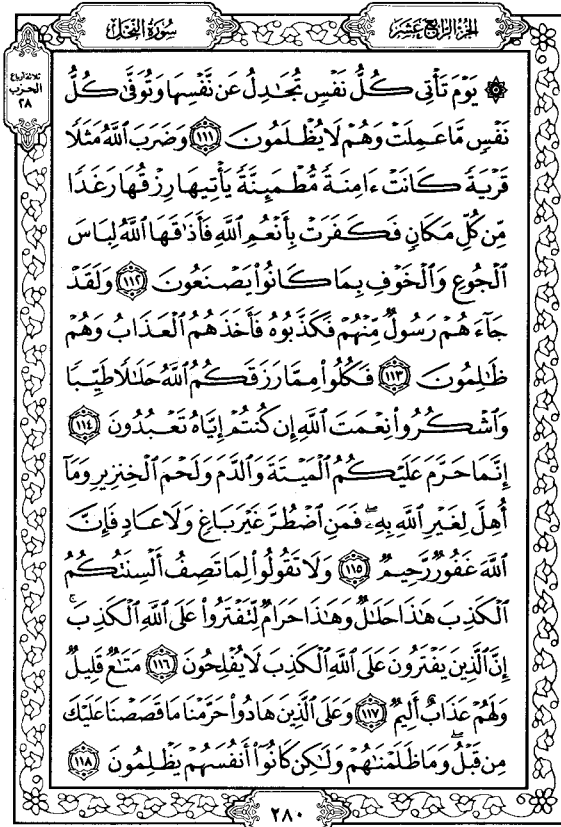 الجزء الرابع عشر
سورة النحل
ثلاثة أرباع
الحزب
٢٨
۞ يَوْمَ تَأْتِى كُلُّ نَفْسٍ تُجَـٰدِلُ عَن نَّفْسِهَا وَتُوَفَّىٰ كُلُّ
نَفْسٍ مَّا عَمِلَتْ وَهُمْ لَا يُظْلَمُونَ ١١١ وَضَرَبَ ٱللَّهُ مَثَلًا
قَرْيَةً كَانَتْ ءَامِنَةً مُّطْمَئِنَّةً يَأْتِيهَا رِزْقُهَا رَغَدًا
مِّن كُلِّ مَكَانٍ فَكَفَرَتْ بِأَنْعُمِ ٱللَّهِ فَأَذَٰقَهَا ٱللَّهُ لِبَاسَ
ٱلْجُوعِ وَٱلْخَوْفِ بِمَا كَانُوا۟ يَصْنَعُونَ ١١٢ وَلَقَدْ
جَآءَهُمْ رَسُولٌ مِّنْهُمْ فَكَذَّبُوهُ فَأَخَذَهُمُ ٱلْعَذَابُ وَهُمْ
ظَـٰلِمُونَ ١١٣ فَكُلُوا۟ مِمَّا رَزَقَكُمُ ٱللَّهُ حَلَـٰلًا طَيِّبًا
وَٱشْكُرُوا۟ نِعْمَتَ ٱللَّهِ إِن كُنتُمْ إِيَّاهُ تَعْبُدُونَ ١١٤
إِنَّمَا حَرَّمَ عَلَيْكُمُ ٱلْمَيْتَةَ وَٱلدَّمَ وَلَحْمَ ٱلْخِنزِيرِ وَمَآ
أُهِلَّ لِغَيْرِ ٱللَّهِ بِهِۦ ۖ فَمَنِ ٱضْطُرَّ غَيْرَ بَاغٍ وَلَا عَادٍ فَإِنَّ
ٱللَّهَ غَفُورٌ رَّحِيمٌ ١١٥ وَلَا تَقُولُوا۟ لِمَا تَصِفُ أَلْسِنَتُكُمُ
ٱلْكَذِبَ هَـٰذَا حَلَـٰلٌ وَهَـٰذَا حَرَامٌ لِّتَفْتَرُوا۟ عَلَى ٱللَّهِ ٱلْكَذِبَ ۚ
إِنَّ ٱلَّذِينَ يَفْتَرُونَ عَلَى ٱللَّهِ ٱلْكَذِبَ لَا يُفْلِحُونَ ١١٦ مَتَـٰعٌ قَلِيلٌ
وَلَهُمْ عَذَابٌ أَلِيمٌ ١١٧ وَعَلَى ٱلَّذِينَ هَادُوا۟ حَرَّمْنَا مَا قَصَصْنَا عَلَيْكَ
مِن قَبْلُ ۖ وَمَا ظَلَمْنَـٰهُمْ وَلَـٰكِن كَانُوٓا۟ أَنفُسَهُمْ يَظْلِمُونَ ١١٨
٢٨٠